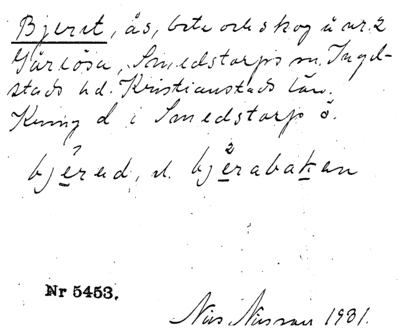 Bjeret, ås, bete och skog å nr. 2
Gärlösa, Smedstorps sn. Ingel-
stads hd. Kristianstads län.
Kung d i Smedstorp ö.
bjerud, l. bjerabakan
Nr 5453.
Nils Nilsson 1931.